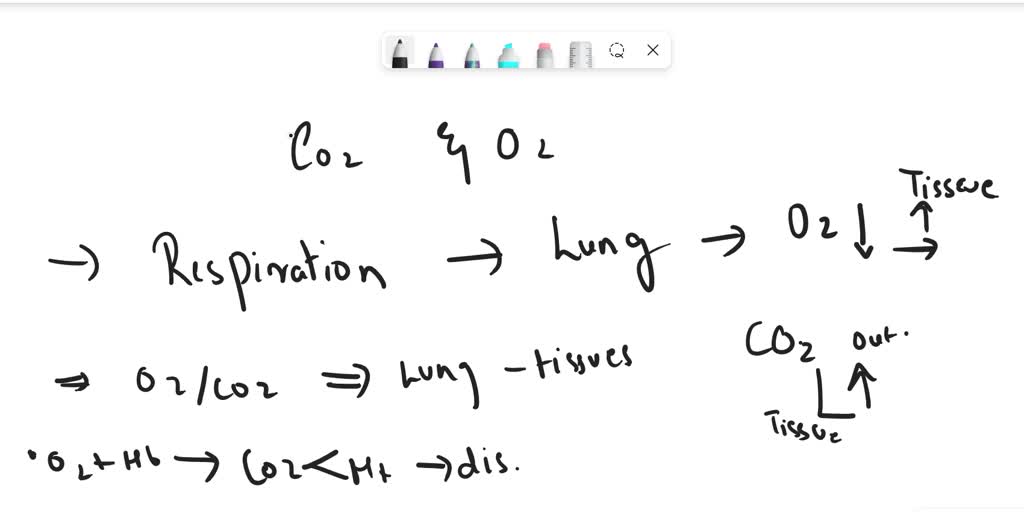 CO2 & O2
→ Respiration → Lung → O2 ↓ → ↑ Tissue
CO2 out.
⇒ O2/CO2 ⇒ Lung - tissues
Tissue
• O2 + Hb → CO2 < H+ → dis.